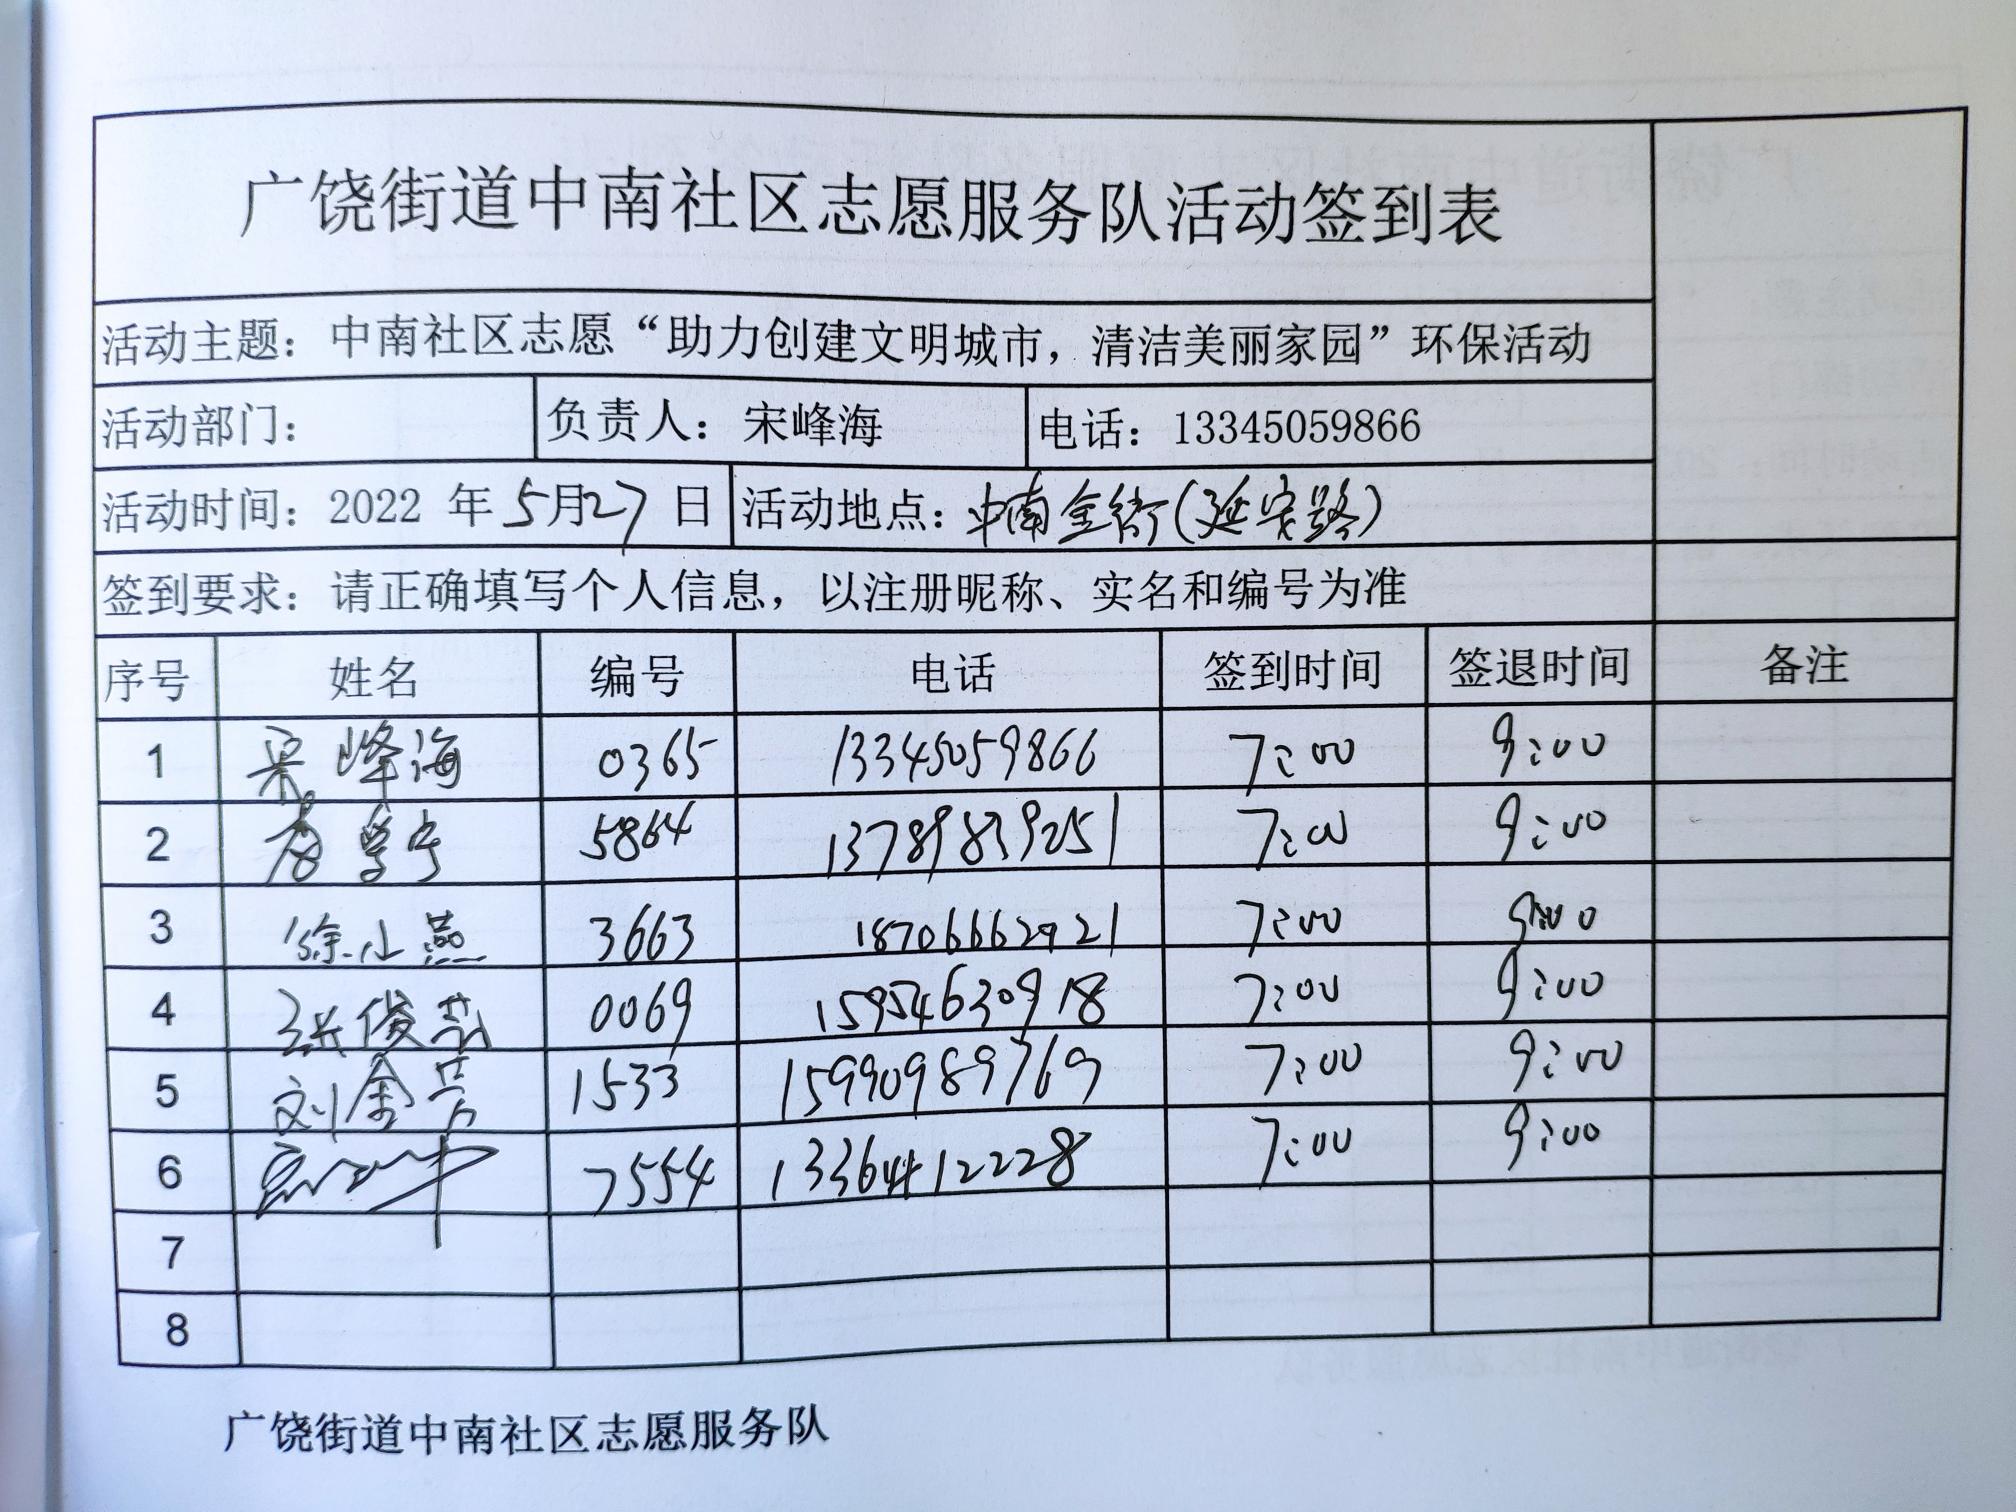 广饶街道中南社区志愿服务队活动签到表
活动主题：中南社区志愿“助力创建文明城市，清洁美丽家园”环保活动
活动部门： 负责人：宋峰海 电话：13345059866
活动时间：2022 年 5月27 日 活动地点：中南金街(延安路)
签到要求：请正确填写个人信息，以注册昵称、实名和编号为准
序号 姓名 编号 电话 签到时间 签退时间 备注
1 宋峰海 0365 13345059866 7:00 9:00
2 5864 13789839251 7:00 9:00
3 徐小燕 3663 18706662921 7:00 9:00
4 张俊 0069 15954630918 7:00 9:00
5 刘金芳 1533 15990989769 7:00 9:00
6 7554 13364412228 7:00 9:00
7
8
广饶街道中南社区志愿服务队